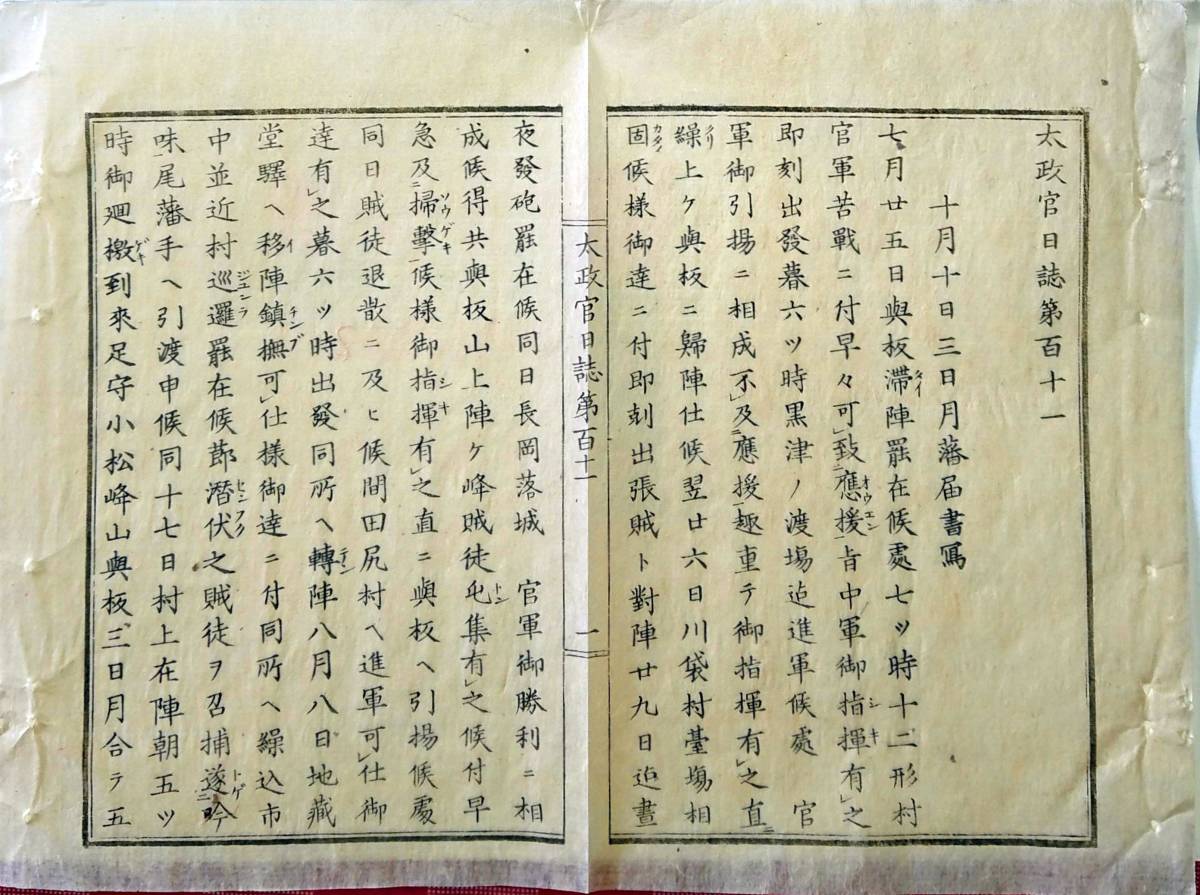 太政官日誌第百十一
十月十日三日月藩届書寫
七月廿五日與板滯陣罷在候處七ツ時十二形村
官軍苦戰ニ付早々可致應援旨中軍御指揮有之
即刻出發暮六ツ時黒津ノ渡場迠進軍候處 官
軍御引揚ニ相成不及應援趣重テ御指揮有之直ニ
繰上ケ與板ニ歸陣仕候翌廿六日川袋村臺場相
固候様御達ニ付即刻出張賊ト對陣廿九日迠晝
太政官日誌第百十一 一
夜發砲罷在候同日長岡落城 官軍御勝利ニ相
成候得共與板山上陣ケ峰賊徒屯集有之候付早
急及掃擊候様御指揮有之直ニ與板ヘ引揚候處
同日賊徒退散ニ及ヒ候間田尻村ヘ進軍可仕御
達有之暮六ツ時出發同所ヘ轉陣八月八日地藏
堂驛ヘ移陣鎮撫可仕様御達ニ付同所ヘ繰込市
中並近村巡邏罷在候節潜伏之賊徒ヲ召捕遂吟
味尾藩手ヘ引渡申候同十七日村上在陣朝五ツ
時御廻檄到來足守小松峰山與板三日月合テ五